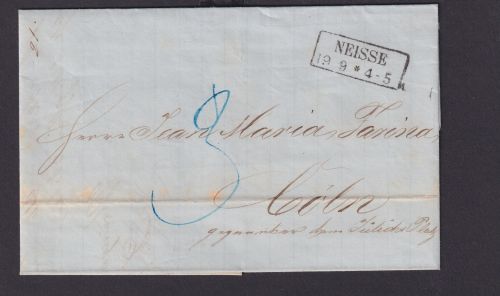 NEISSE
19 9 * 4-5
3
Herrn Jean Maria Farina,
Cöln
gegenüber dem Jülichs Platz